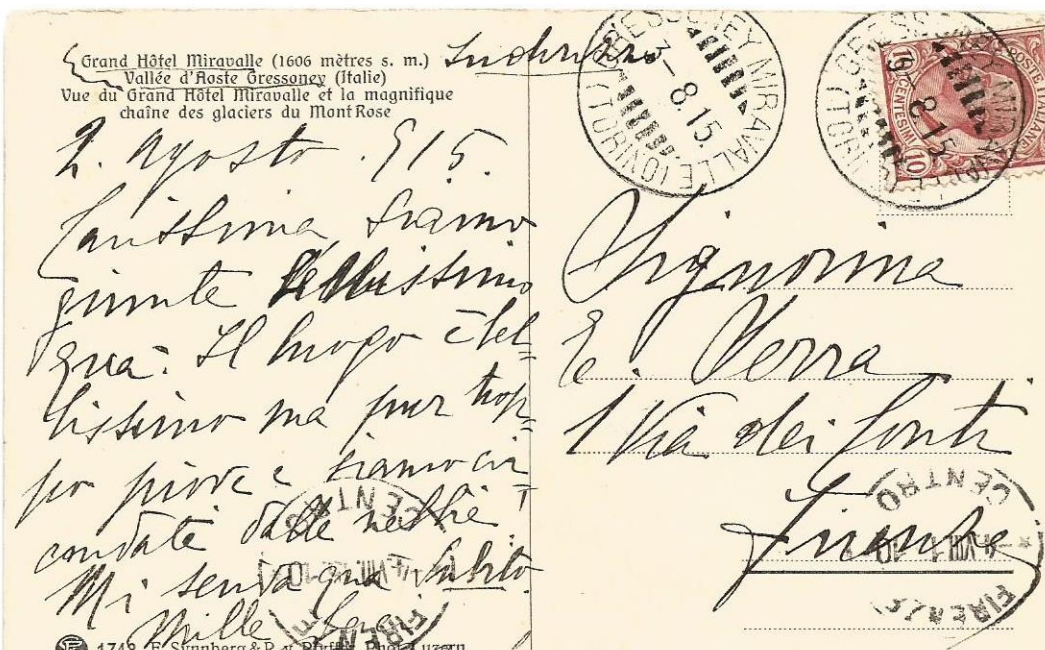 Grand Hôtel Miravalle (1606 mètres s. m.)
Vallée d'Aoste Gressoney (Italie)
Vue du Grand Hôtel Miravalle et la magnifique
chaîne des glaciers du Mont Rose
Indirizzo
2. Agosto. 915.
Carissima, siamo
giunte benissimo
qua. Il luogo è bel=
lissimo ma pur trop=
po piove e siamo cir
condate dalle nebbie!
Mi scriva qua subito
Mille
1743 E. Synnberg & R. v. Pfyffer, Phot. Luzern
GRESSONEY MIRAVALLE (TORINO)
3-8.15.
GRESSONEY MIRAVALLE (TORINO)
8.15
POSTE ITALIANE
CENTESIMI 10
Signorina
E. Verra
1 Via dei Conti
Firenze
FIRENZE CENTRO
FIRENZE CENTRO